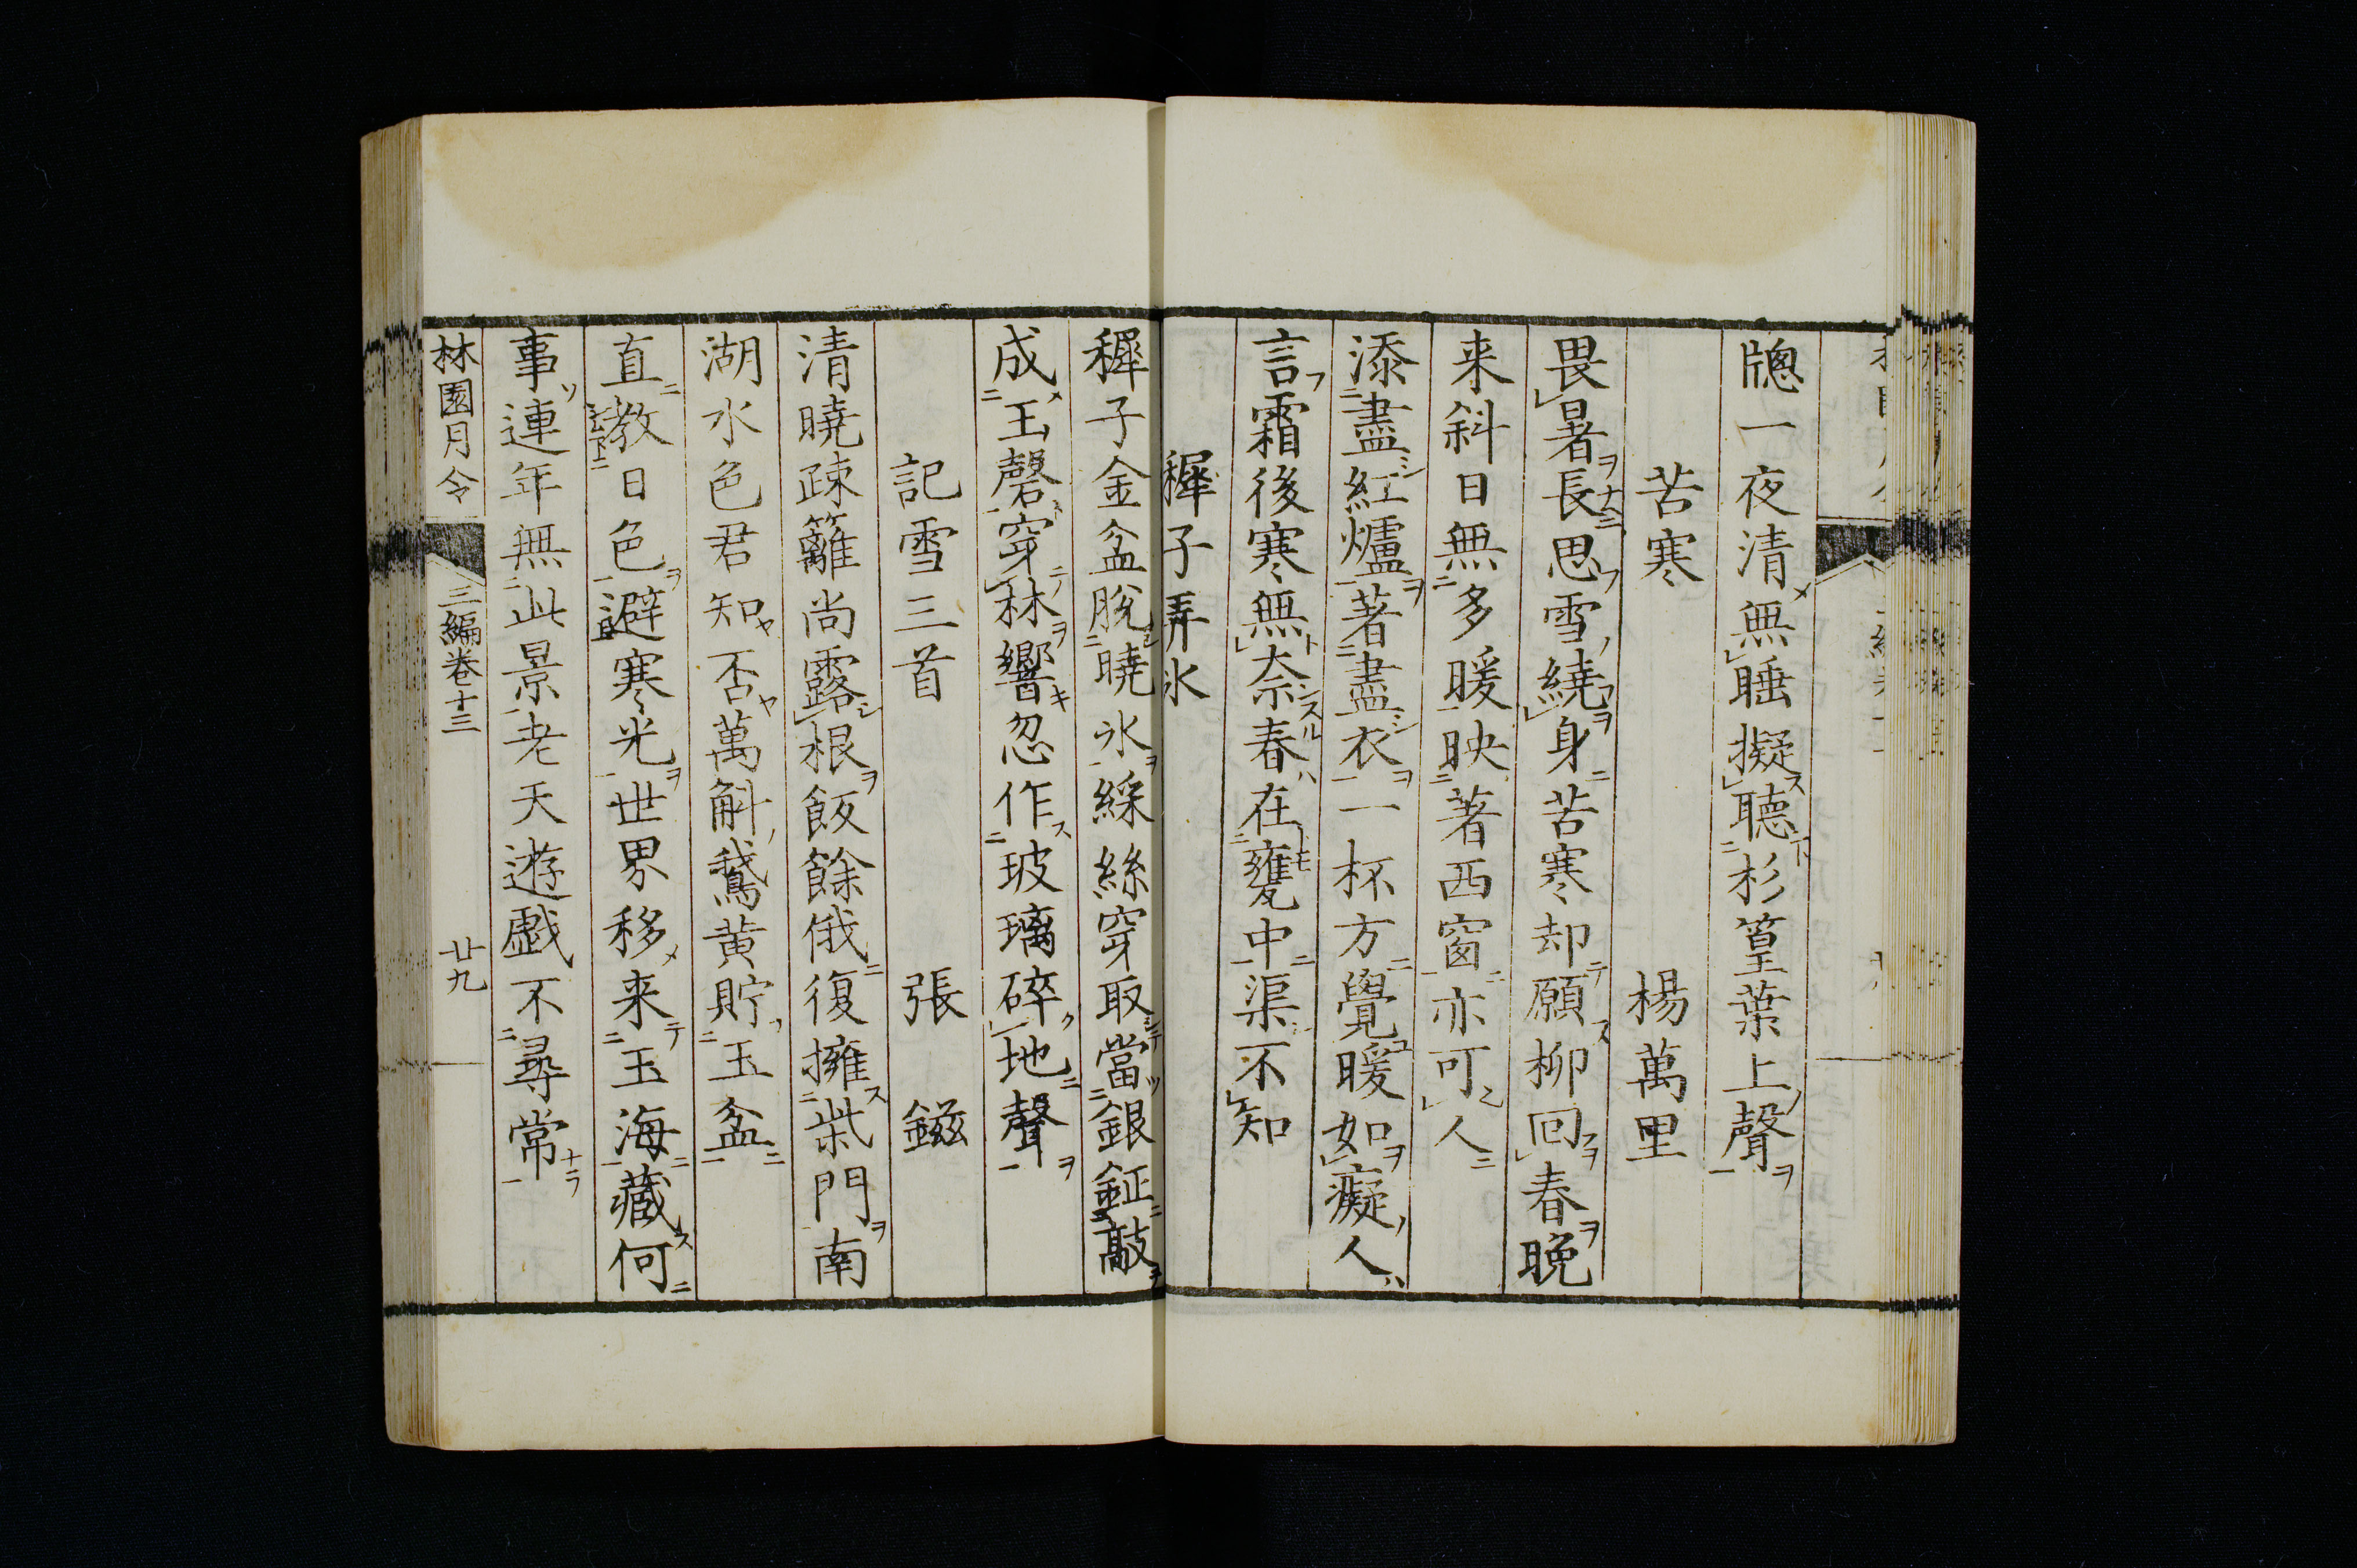 牕一夜清無睡擬聽杉篁葉上聲
苦寒　楊萬里
畏暑長思雪繞身苦寒却願柳回春晚
来斜日無多暖映著西窗亦可人
添盡紅爐著盡衣一杯方覺暖如癡人
言霜後寒無奈春在甕中渠不知
穉子弄氷
穉子金盆脫曉氷綵絲穿取當銀鉦敲
成玉磬穿林響忽作玻璃碎地聲
記雪三首　張鎡
清曉疎籬尚露根飯餘俄復擁柴門南
湖水色君知否萬斛鵝黄貯玉盆
直教日色避寒光世界移来玉海藏何
事連年無此景老天遊戯不尋常
林園月令　三編卷十三　廿九